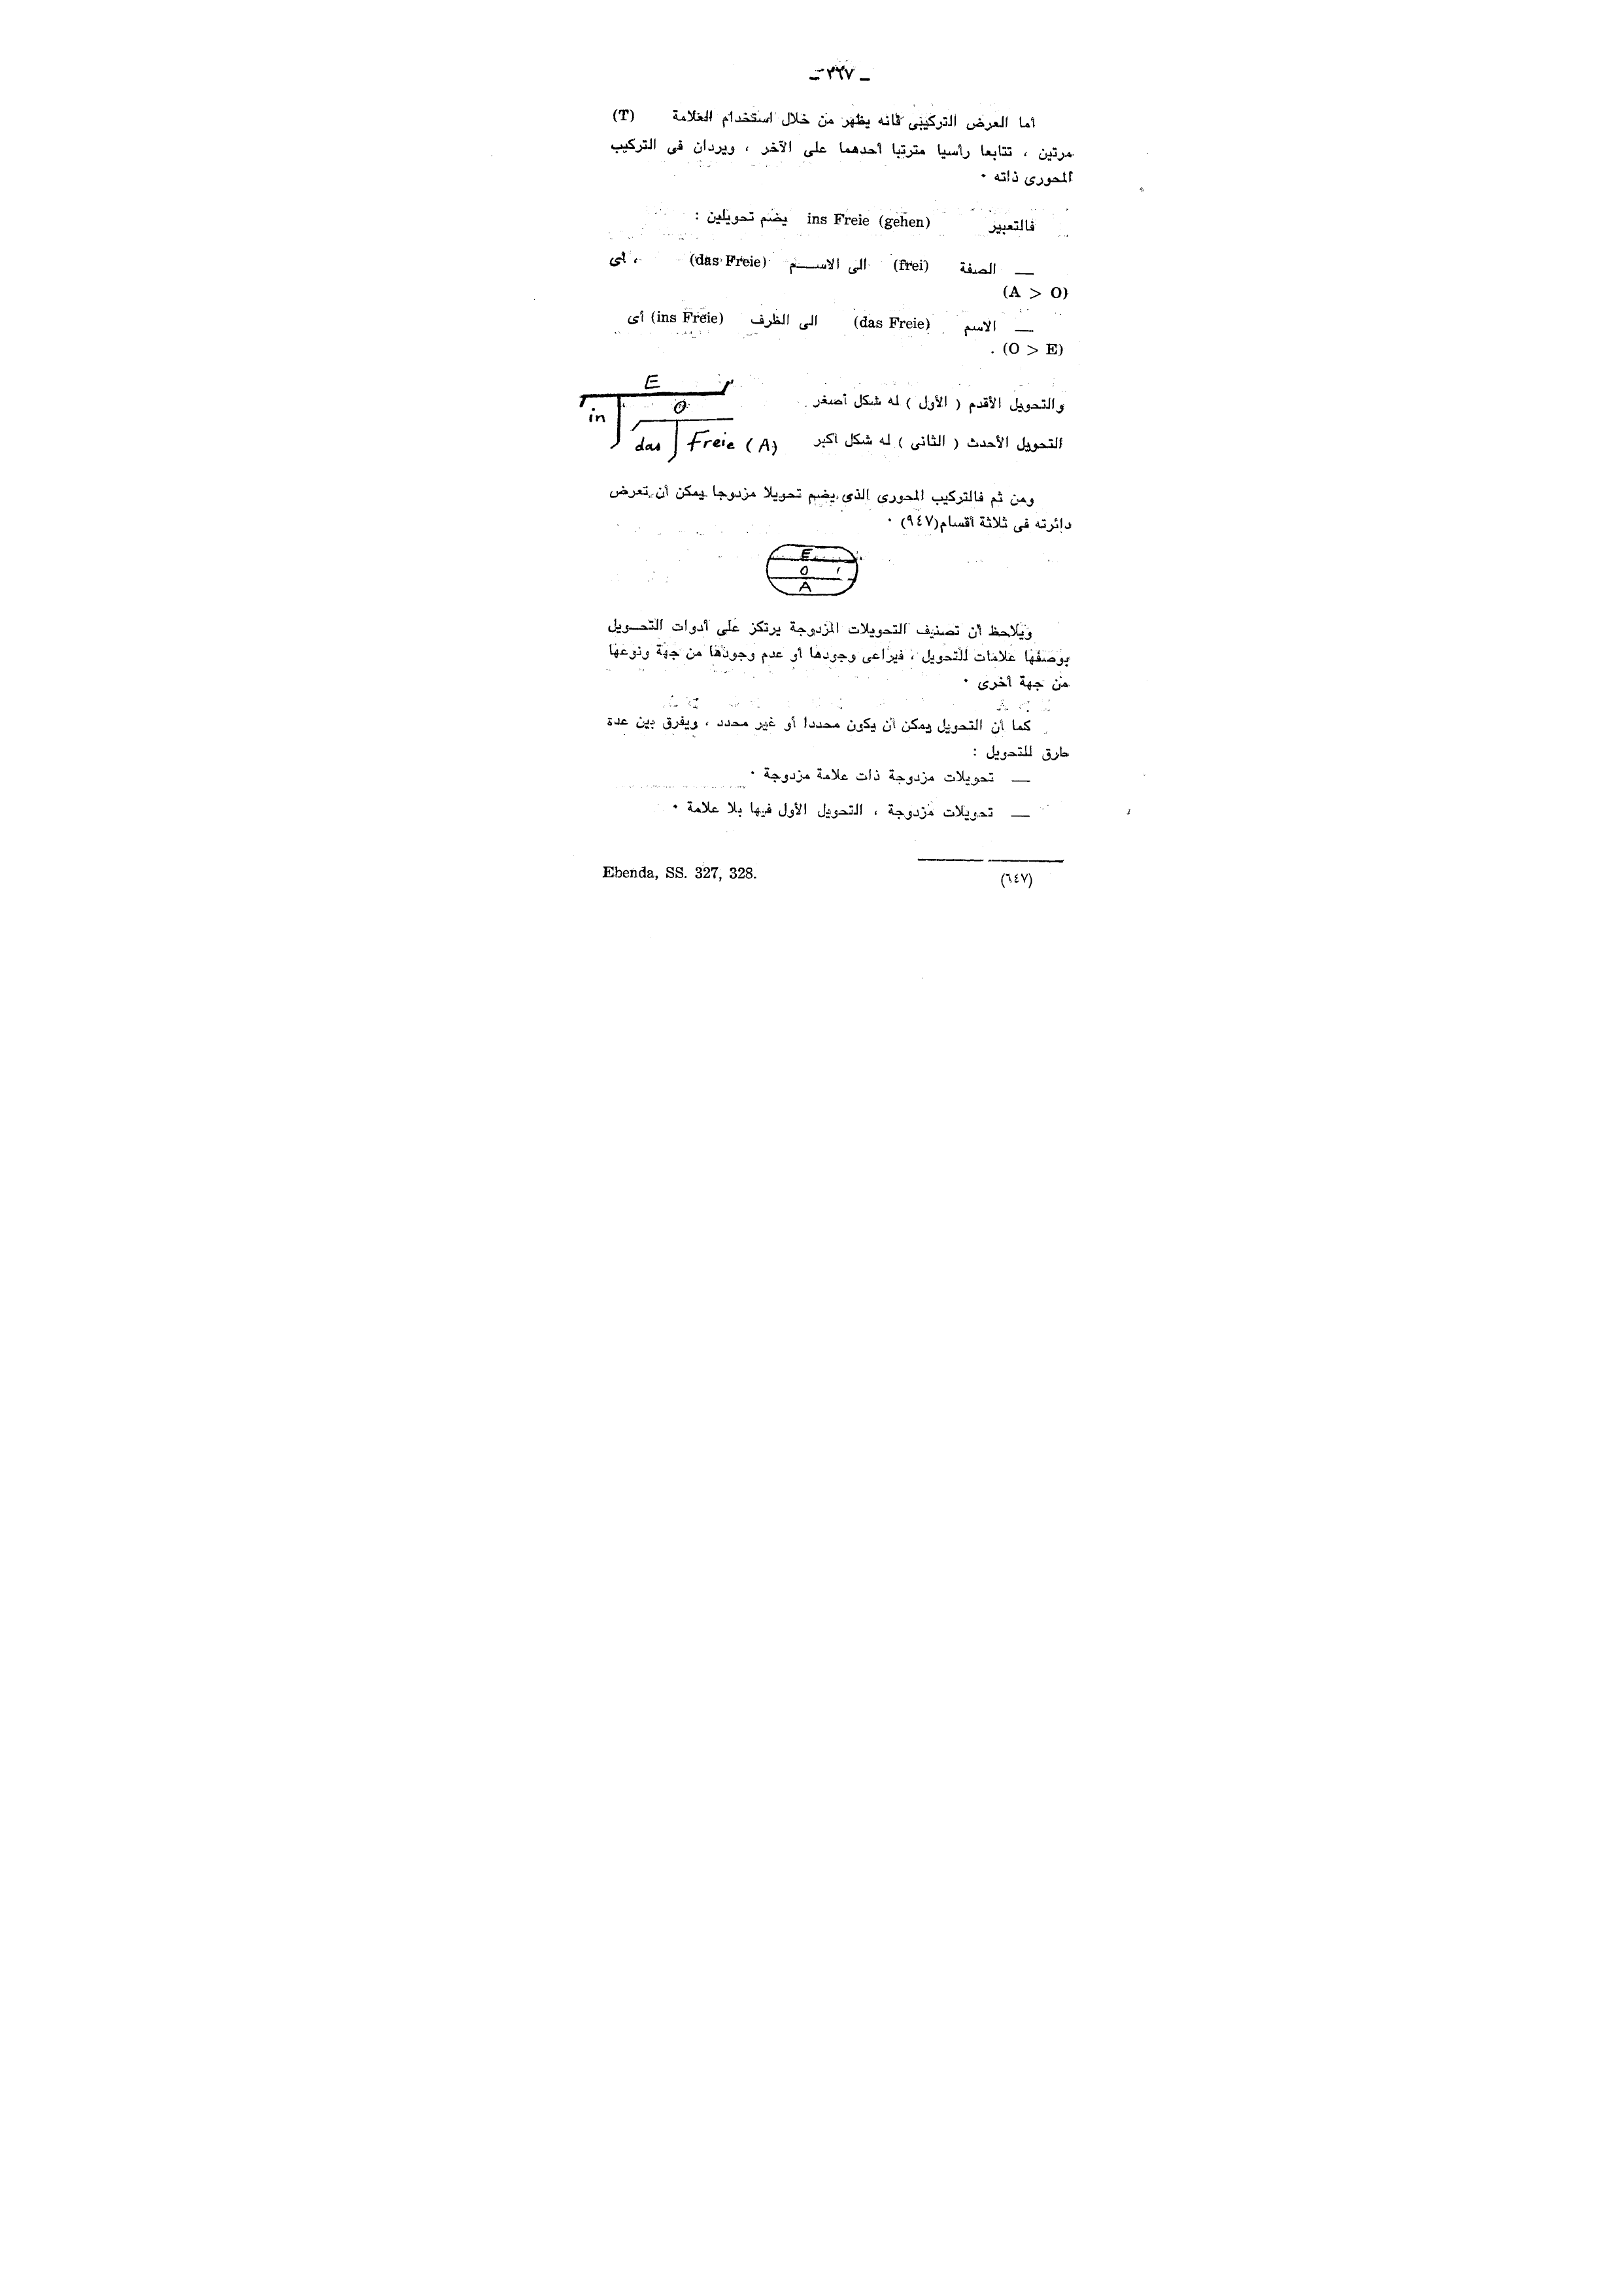 ـ ٣٦٧ ـ
أما العرض التركيبى فانه يظهر من خلال استخدام العلامة (T)
مرتين ، تتابعا رأسيا مترتبا أحدهما على الآخر ، ويردان فى التركيب
المحورى ذاته ٠
فالتعبير ins Freie (gehen) يضم تحويلين :
— الصفة (frei) الى الاســـم (das Freie) ، أى
(A > O)
— الاسم (das Freie) الى الظرف (ins Freie) أى
(O > E) .
E
والتحويل الأقدم ( الأول ) له شكل أصغر
in O
التحويل الأحدث ( الثانى ) له شكل أكبر
das Freie (A)
ومن ثم فالتركيب المحورى الذى يضم تحويلا مزدوجا يمكن أن تعرض
دائرته فى ثلاثة أقسام(٩٤٧) ٠
E
O
A
ويلاحظ أن تصنيف التحويلات المزدوجة يرتكز على أدوات التحـويل
بوصفها علامات للتحويل ، فيراعى وجودها أو عدم وجودها من جهة ونوعها
من جهة أخرى ٠
كما أن التحويل يمكن أن يكون محددا أو غير محدد ، ويفرق بين عدة
طرق للتحويل :
— تحويلات مزدوجة ذات علامة مزدوجة ٠
— تحويلات مزدوجة ، التحويل الأول فيها بلا علامة ٠
(٦٤٧) Ebenda, SS. 327, 328.